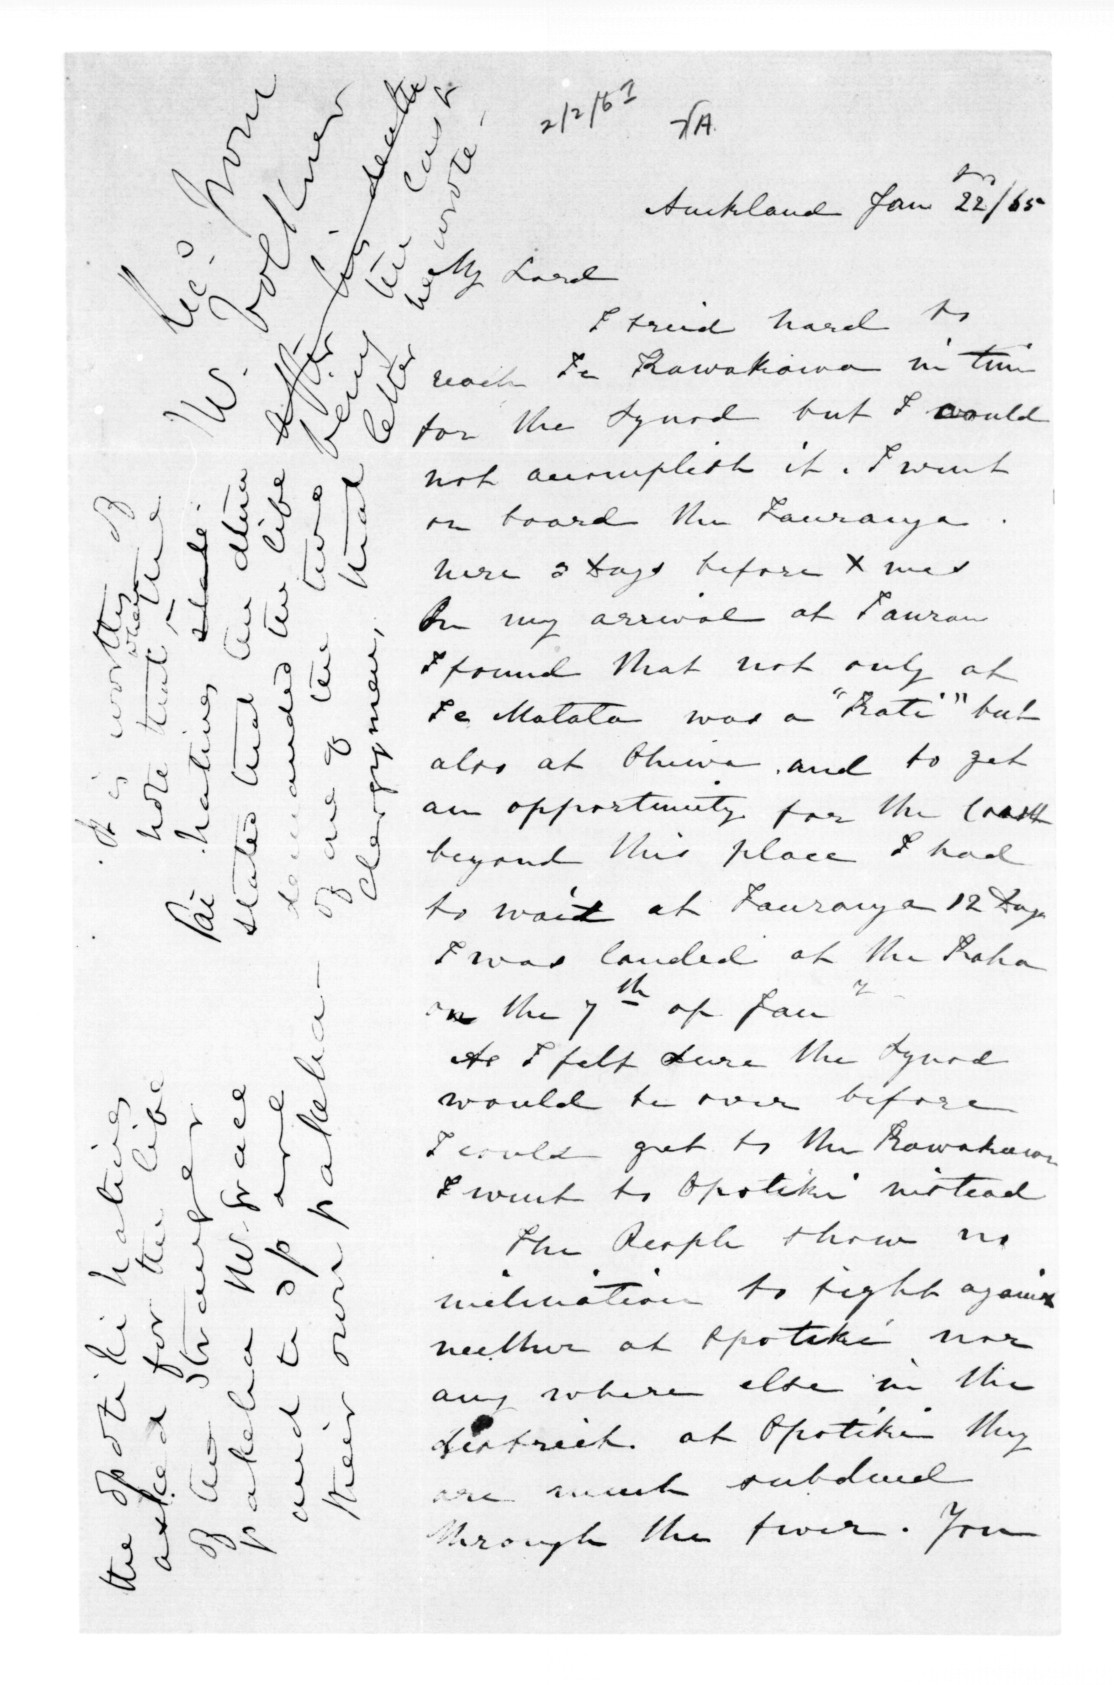 2/2/65
Auckland Jan 22nd/65
My Lord
I treid hard to
reach Te Kawakawa in time
for the Synod but I could
not accomplish it. I went
on board the Tauranga.
here 2 Days before Xmas
On my arrival at Tauran
I found that not only at
Te Matata was a "Rati" but
also at Ohiwa. and to get
an opportunity for the Coast
beyond this place I had
to wait at Tauranga 12 Days
I was landed at the Kaha
on the 7th of Jany
As I felt Sure the Synod
would be over before
I could get to the Kawakawa
I went to Opotiki instead
The People show no
inclination to fight against
neither at Opotiki nor
any where else in the
district. at Opotiki they
are much subdued
through the fever. You
Recd from
W. Volkner
after his death
being the last
letter he wrote.
It is worthy of
note that when the
Pai hatives state
stated that the atua
demanded the life
of one of the two
clergymen, that
the opotiki natives
asked for the life
of the stranger
pakeha Mr. Grace
and to spare
their own pakeha